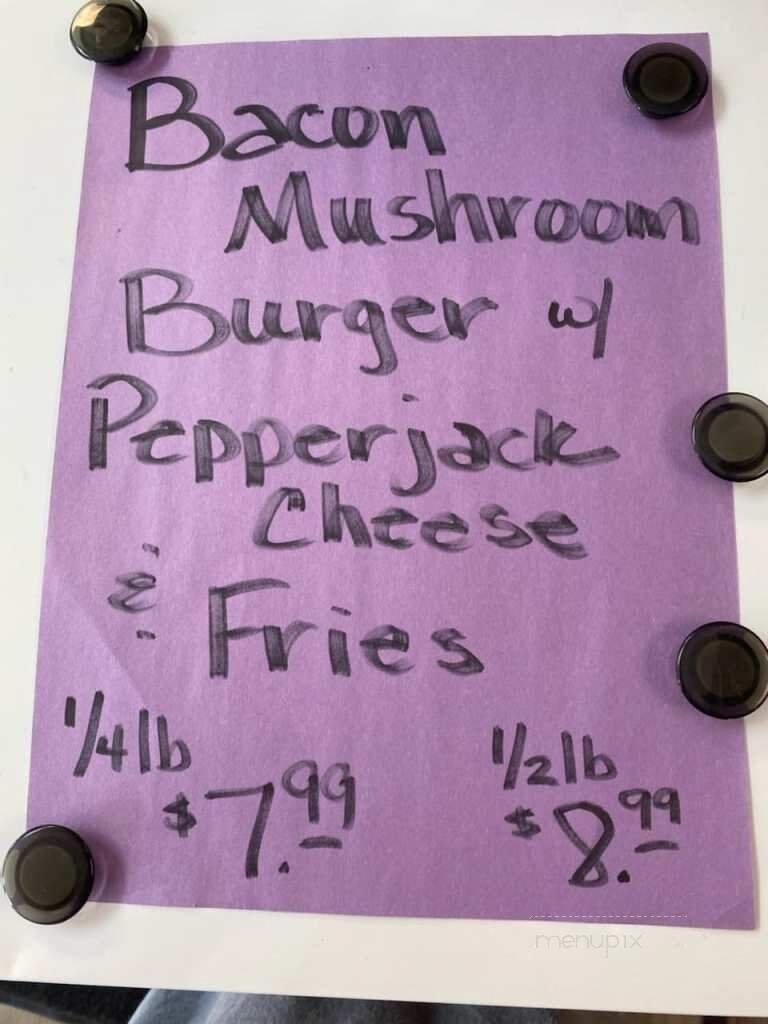 Bacon
Mushroom
Burger w/
Pepperjack
Cheese
& Fries
1/4 lb
$7.99
1/2 lb
$8.99
menupix